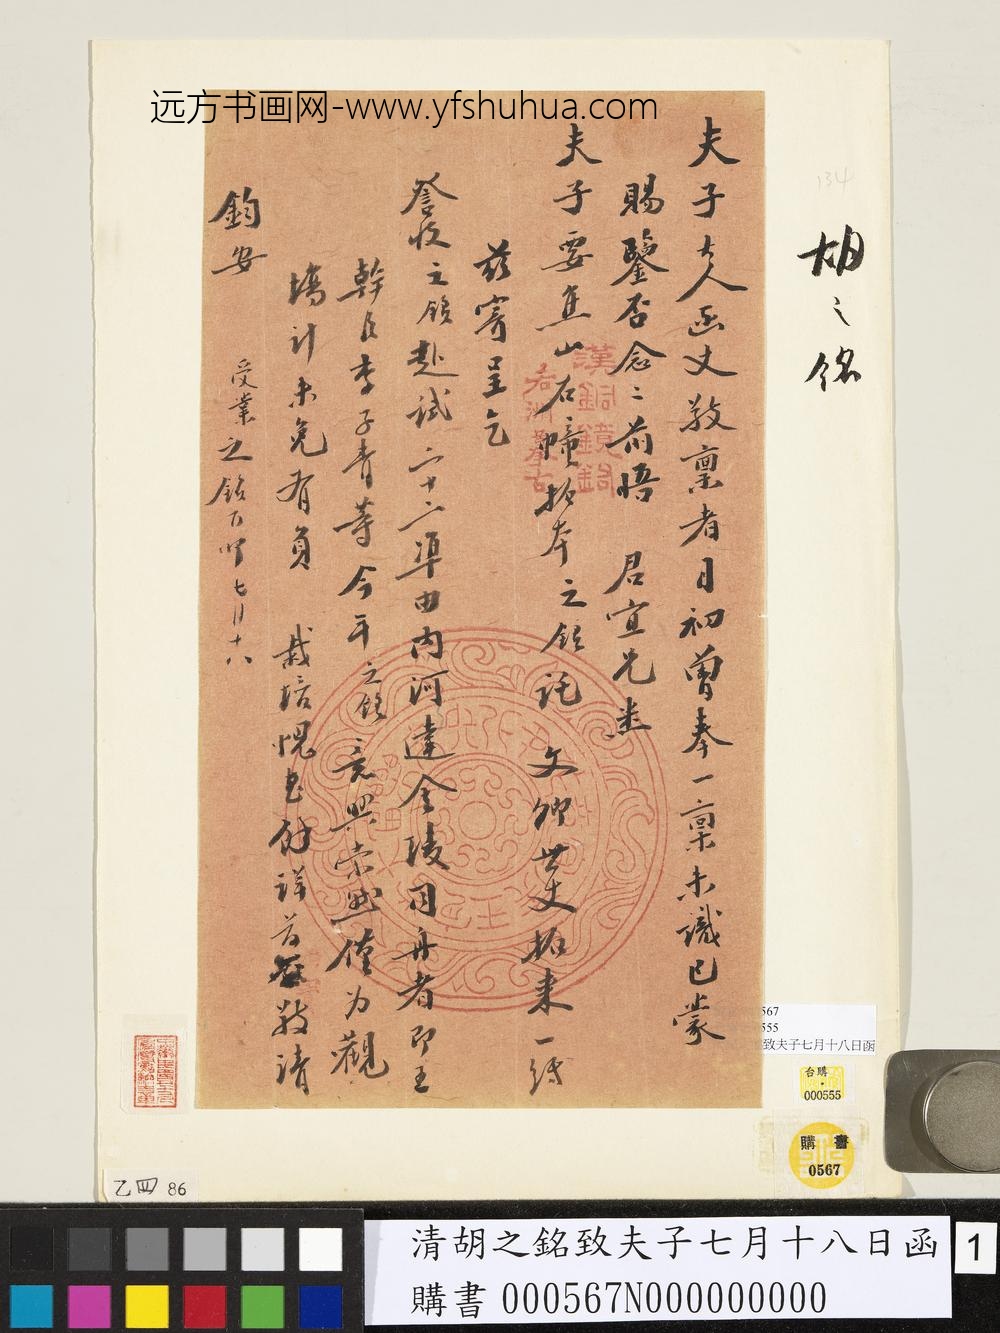 远方书画网-www.yfshuhua.com
134
胡之銘
夫子大人函丈敬稟者日初曾奉一稟未識已蒙
賜鑒否念〻前晤 君宜兄悉
夫子要焦山石幢拓本之銘託 文卿世丈拓来一紙
茲寄呈乞
詧收之銘赴試二十二準由内河達金陵同舟者即王
幹臣李子青等今年之銘意興索然僅为觀
場計未免有負 栽培愧甚餘詳前敬請
鈞安
受業之銘百叩七月十八
漢銅鏡
567
555
致夫子七月十八日函
台購
000555
購書
0567
乙四 86
清胡之銘致夫子七月十八日函
購書000567N000000000
1